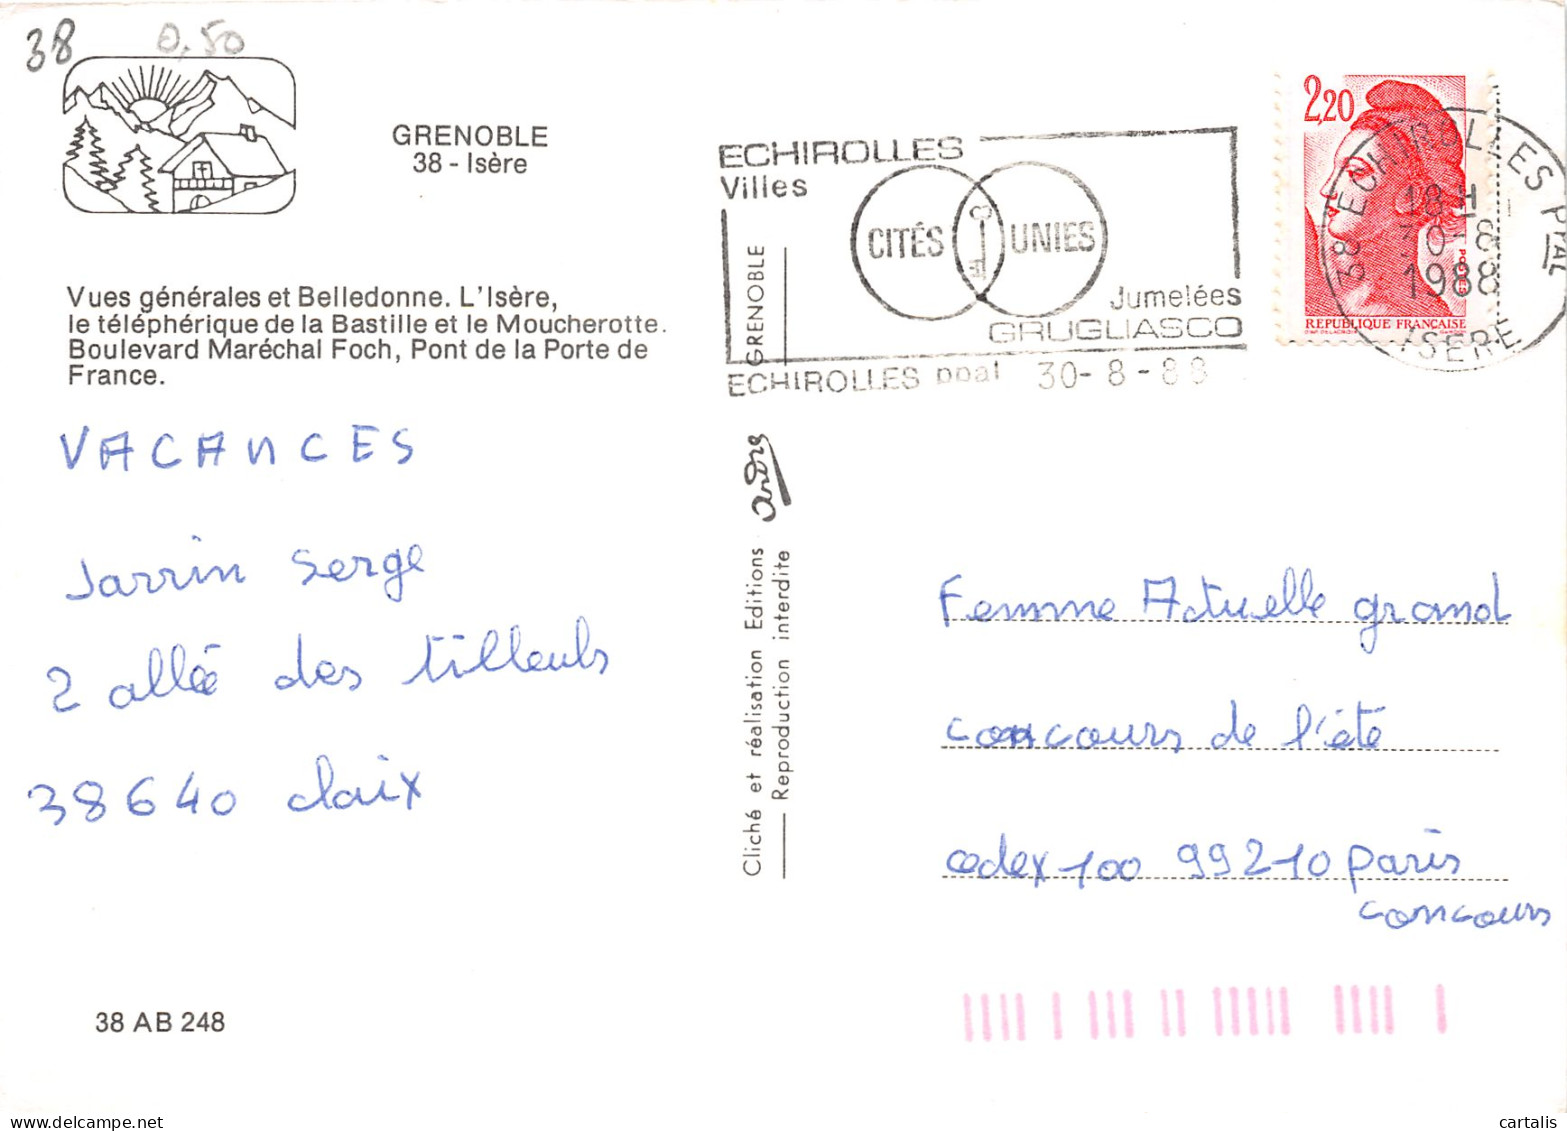 38 0,50
GRENOBLE
38 - Isère
Vues générales et Belledonne. L'Isère,
le téléphérique de la Bastille et le Moucherotte.
Boulevard Maréchal Foch, Pont de la Porte de
France.
VACANCES
Jarrin Serge
2 allée des tilleuls
38640 claix
38 AB 248
ECHIROLLES
Villes
CITÉS UNIES
Jumelées
GRUGLIASCO
ECHIROLLES ppal 30-8-88
GRENOBLE
andre
Cliché et réalisation Editions
Reproduction interdite
2,20
POSTES
REPUBLIQUE FRANÇAISE
38 ECHIROLLES PPAL
18 H
30-8
1988
ISERE
Femme Actuelle grand
concours de l'été
cedex 100 99210 Paris
concours
www.delcampe.net
cartalis